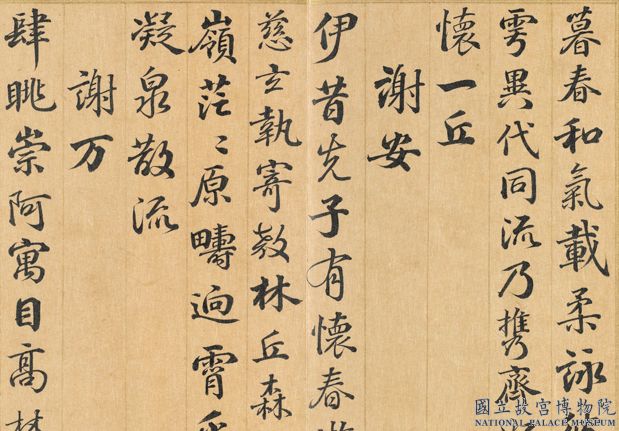 暮春和氣載柔詠
雩異代同流乃携齊
懷一丘
謝安
伊昔先子有懷春
慈言執寄敖林丘森
嶺茫〻原疇逈霄
凝泉散流
謝万
肆眺崇阿寓目髙林
國立故宮博物院
NATIONAL PALACE MUSEUM